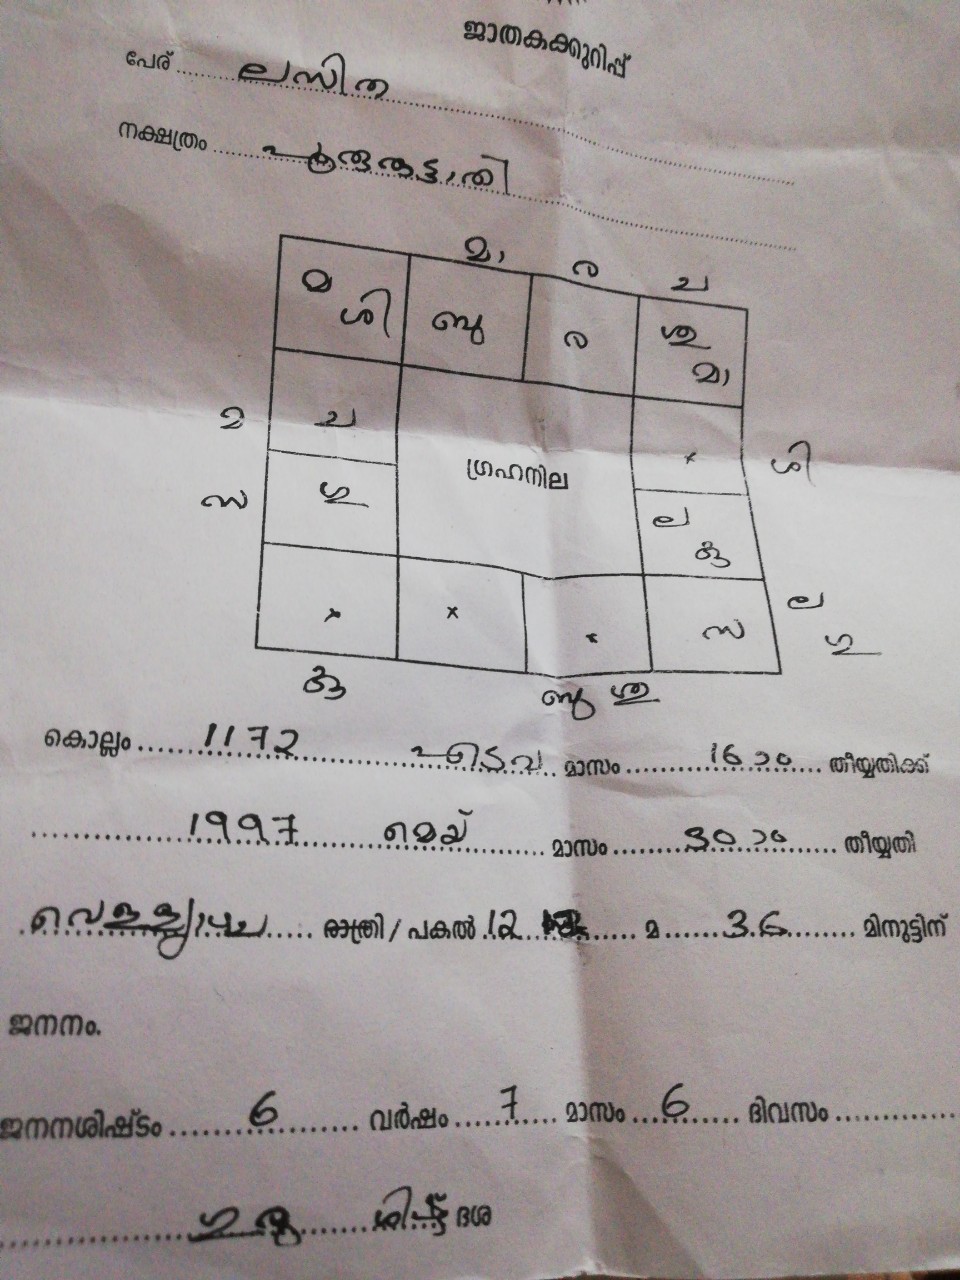 ജാതകക്കുറിപ്പ്
പേര് ലസിത
നക്ഷത്രം പൂരുരുട്ടാതി
മാ ര ച
മ ശി ബു ര ശു മാ
മ ച x ശി
ഗ്രഹനില
സ ഗു ല കു
x x x സ ല ഗു
കു ബു ശു
കൊല്ലം 1172 എടവ മാസം 16 ാം തീയ്യതിക്ക്
1997 മെയ് മാസം 30 ാം തീയ്യതി
വെള്ളിയാഴ്ച രാത്രി / പകൽ 12 മ 36 മിനുട്ടിന്
ജനനം.
ജനനശിഷ്ടം 6 വർഷം 7 മാസം 6 ദിവസം
ഗുരു ശിഷ്ട ദശ